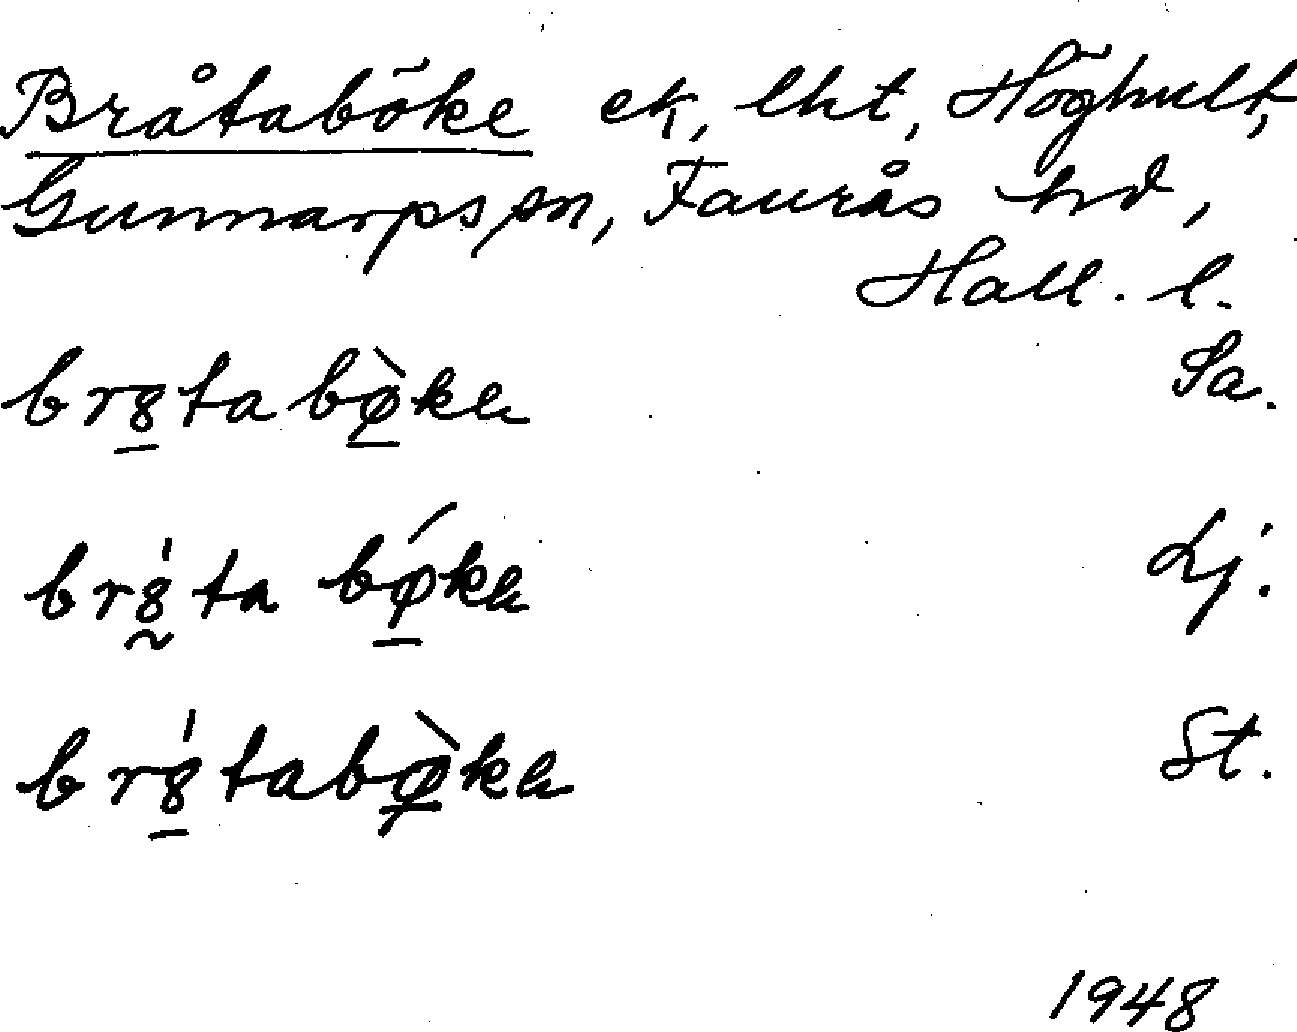 Bråtaböke ek, lht, Höghult,
Gunnarps sn, Faurås hd,
Hall. l.
br8̲ta bø̲̀ke Sa.
br8̰́ta bǿ̲ke Lj.
br8̲́tabø̲̀ke St.
1948